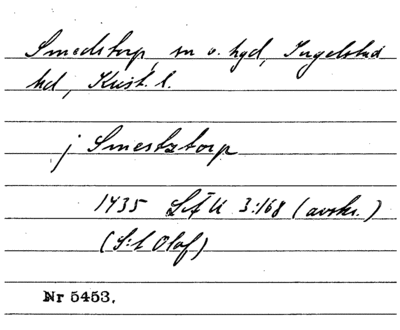 Smedstorp, sn o. hgd, Ingelstad
hd, Krist. l.
j Smestztorp
1435 LÄU 3:168 (avskr.)
(S:t Olof)
Nr 5453.